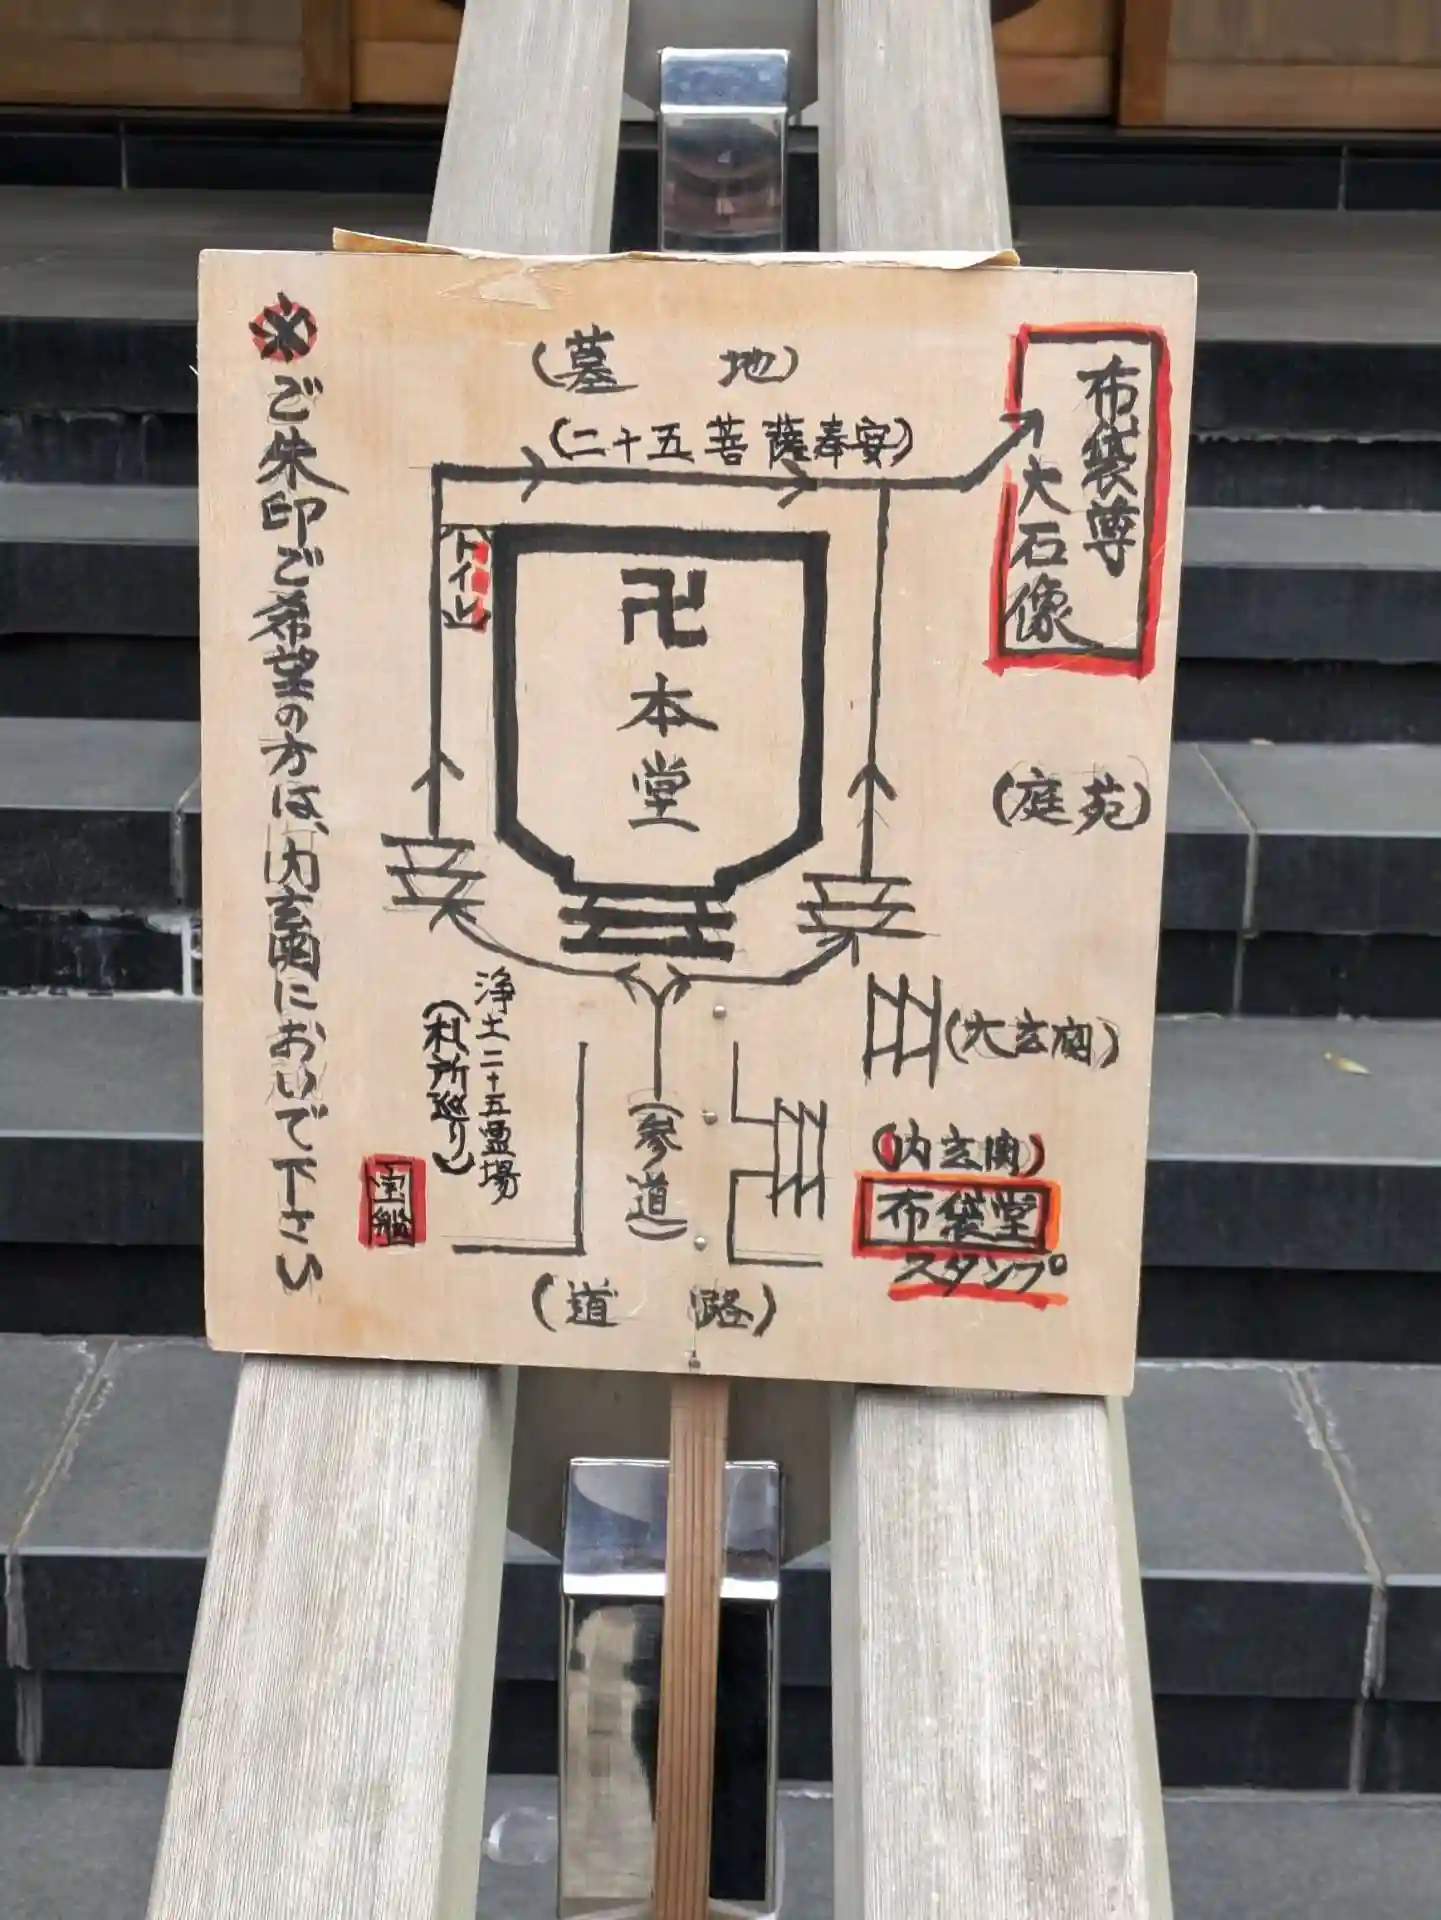 ※ご朱印ご希望の方は、内玄関においで下さい
(墓地)
(二十五菩薩奉安)
布袋尊
大石像
トイレ
卍
本堂
(庭苑)
浄土二十五霊場
(札所巡り)
(大玄関)
(参道)
(内玄関)
布袋堂
スタンプ
(道路)